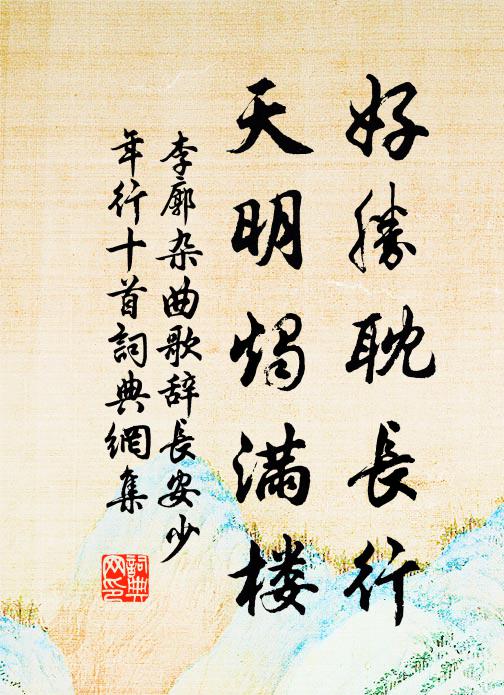 好勝耽長行
天明燭满楼
李廓杂曲歌辞長安少
年行十首詞典網集
詞典网印